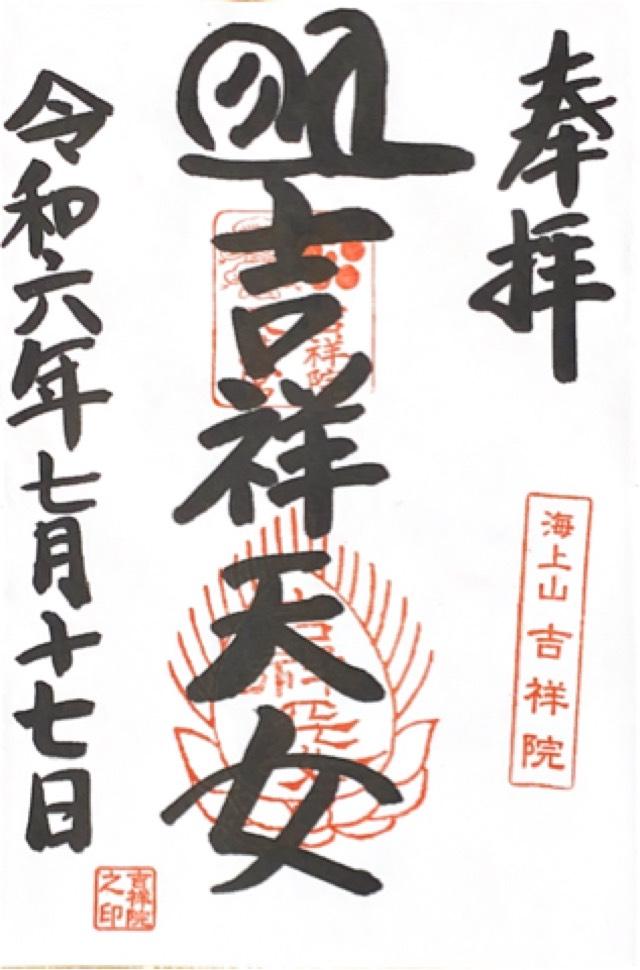 奉拝
海上山 吉祥院
吉祥天女
吉祥院
令和六年七月十七日
吉祥院
之印